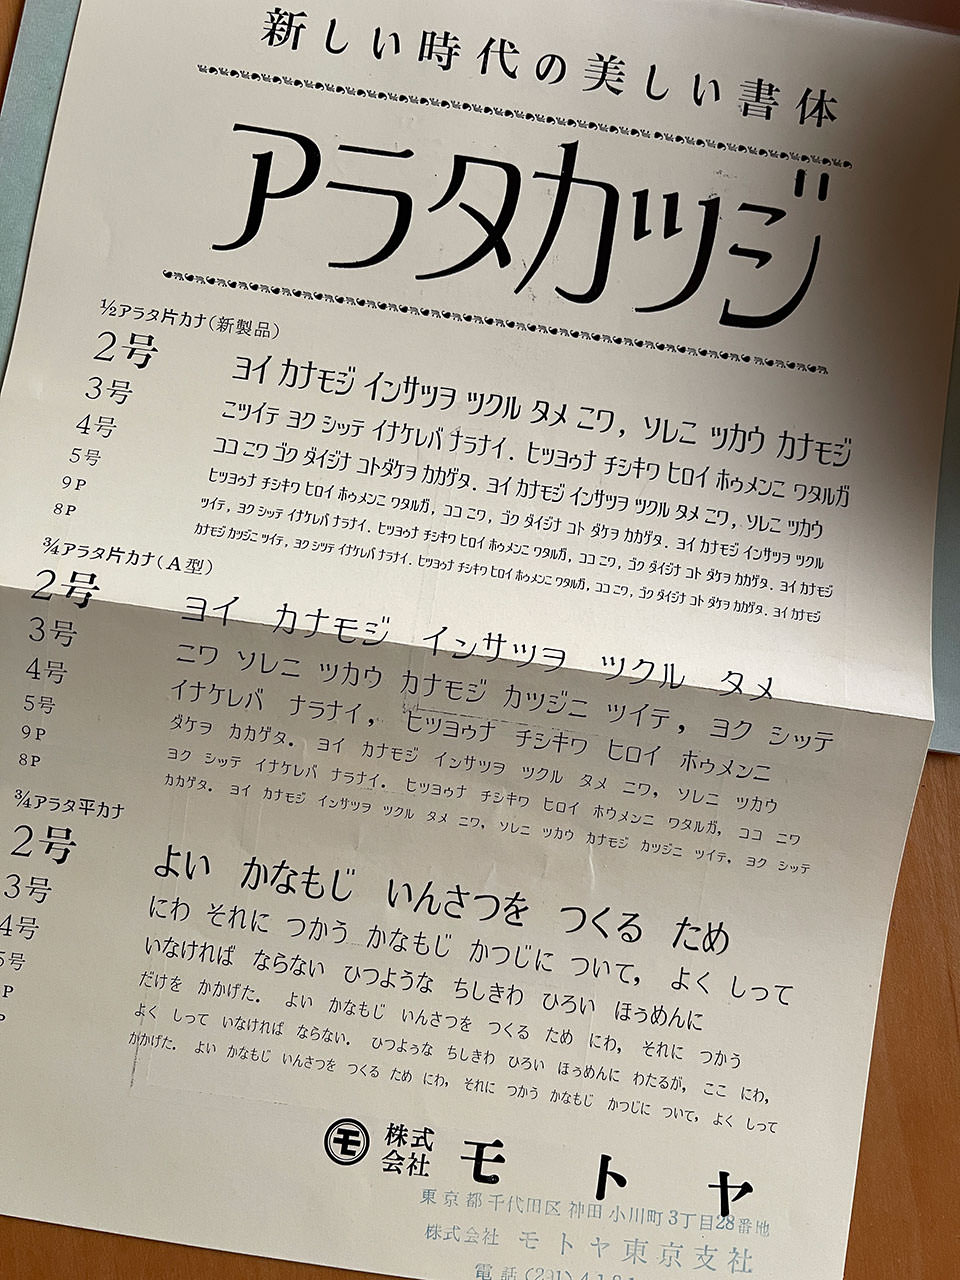 新しい時代の美しい書体
アラタカツジ
½アラタ片カナ(新製品)
2号 ヨイ カナモジ インサツヲ ツクル タメ ニワ, ソレニ ツカウ カナモジ
3号 ニツイテ ヨク シッテ イナケレバ ナラナイ. ヒツヨゥナ チシキワ ヒロイ ホゥメンニ ワタルガ
4号 ココ ニワ ゴク ダイジナ コトダケヲ カカゲタ. ヨイ カナモジ インサツヲ ツクル タメ ニワ, ソレニ ツカウ
5号 ヒツヨゥナ チシキワ ヒロイ ホゥメンニ ワタルガ, ココ ニワ, ゴク ダイジナ コト ダケヲ カカゲタ. ヨイ カナモジ インサツヲ ツクル
9P ツイテ, ヨク シッテ イナケレバ ナラナイ. ヒツヨゥナ チシキワ ヒロイ ホゥメンニ ワタルガ, ココ ニワ, ゴク ダイジナ コト ダケヲ カカゲタ. ヨイ カナモジ
8P カナモジ カツジニ ツイテ, ヨク シッテ イナケレバ ナラナイ. ヒツヨゥナ チシキワ ヒロイ ホゥメンニ ワタルガ, ココ ニワ, ゴク ダイジナ コト ダケヲ カカゲタ. ヨイ カナモジ
¾アラタ片カナ(A型)
2号 ヨイ カナモジ インサツヲ ツクル タメ
3号 ニワ ソレニ ツカウ カナモジ カツジニ ツイテ, ヨク シッテ
4号 イナケレバ ナラナイ, ヒツヨゥナ チシキワ ヒロイ ホゥメンニ
5号 ダケヲ カカゲタ. ヨイ カナモジ インサツヲ ツクル タメ ニワ, ソレニ ツカウ
9P ヨク シッテ イナケレバ ナラナイ. ヒツヨゥナ チシキワ ヒロイ ホウメンニ ワタルガ, ココ ニワ
8P カカゲタ. ヨイ カナモジ インサツヲ ツクル タメ ニワ, ソレニ ツカウ カナモジ カツジニ ツイテ, ヨク シッテ
¾アラタ平カナ
2号 よい かなもじ いんさつを つくる ため
3号 にわ それに つかう かなもじ かつじに ついて, よく しって
4号 いなければ ならない ひつような ちしきわ ひろい ほぅめんに
5号 だけを かかげた. よい かなもじ いんさつを つくる ため にわ, それに つかう
P よく しって いなければ ならない. ひつよぅな ちしきわ ひろい ほぅめんに わたるが, ここ にわ,
かかげた. よい かなもじ いんさつを つくる ため にわ, それに つかう かなもじ かつじに ついて, よく しって
モ 株式会社 モトヤ
東京都千代田区神田小川町3丁目28番地
株式会社 モトヤ東京支社
電話(291)